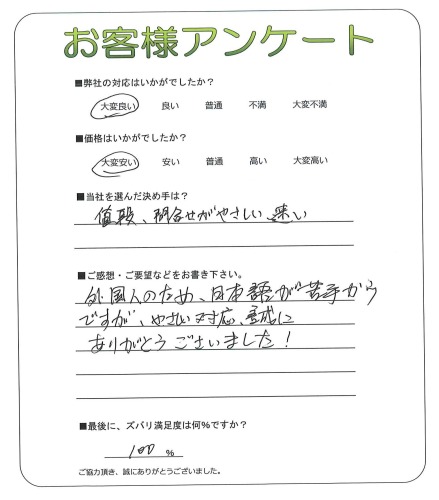 お客様アンケート
■弊社の対応はいかがでしたか？
大変良い 良い 普通 不満 大変不満
■価格はいかがでしたか？
大変安い 安い 普通 高い 大変高い
■当社を選んだ決め手は？
値段、問合せがやさしい、速い
■ご感想・ご要望などをお書き下さい。
外国人のため、日本語が苦手から
ですが、やさしい対応、誠に
ありがとうございました！
■最後に、ズバリ満足度は何％ですか？
100 %
ご協力頂き、誠にありがとうございました。